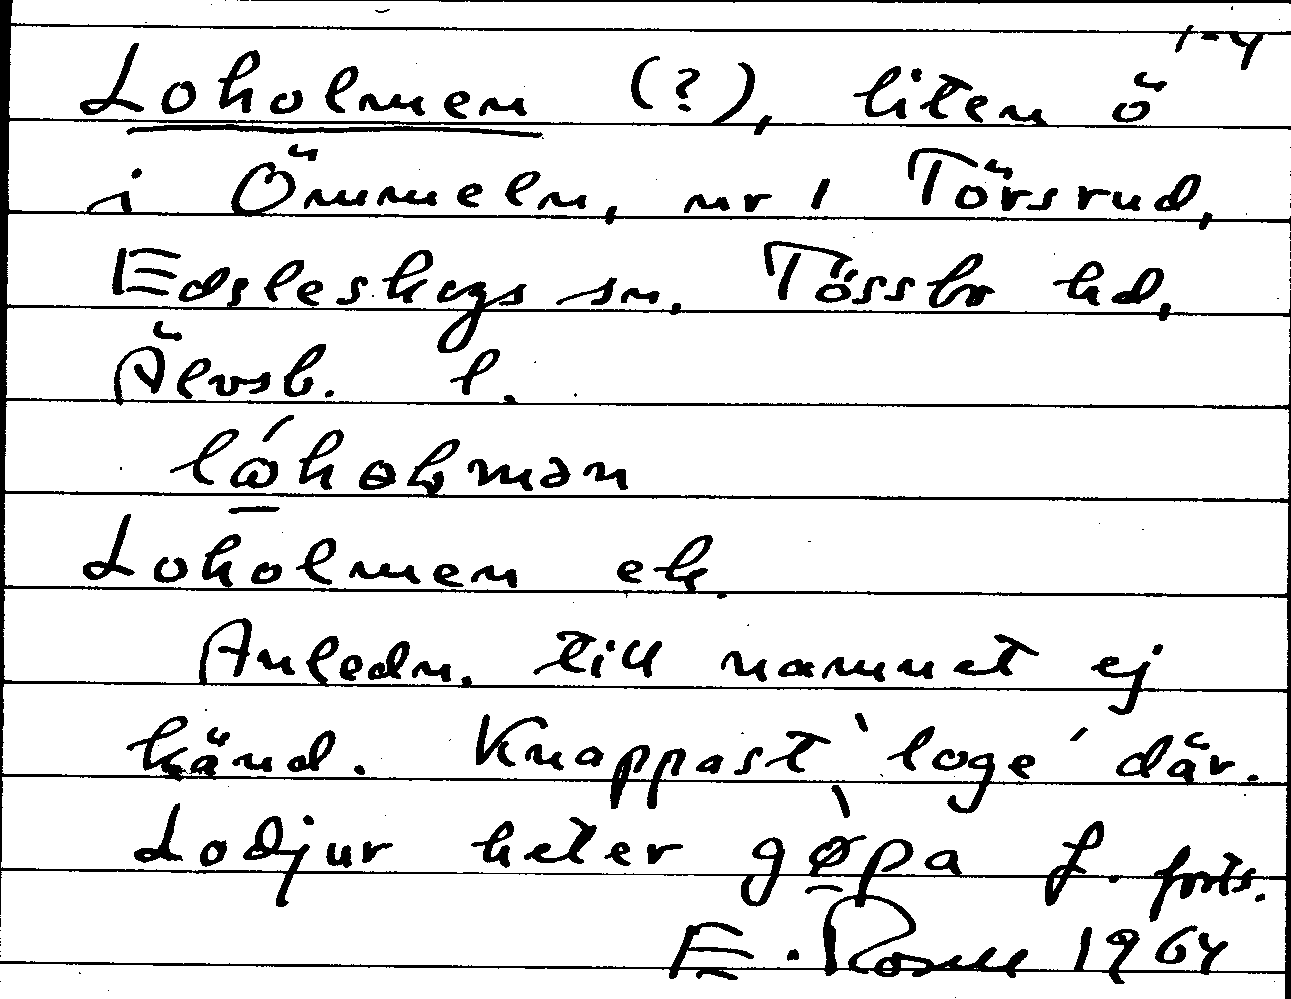 1-4
Loholmen (?), liten ö
i Ömmeln, nr 1 Törsrud,
Edsleskogs sn, Tössbo hd,
Älvsb. l.
Loholmen ek.
Anledn. till namnet ej
känd. Knappast 'loge' där.
Lodjur heter gø̀pa f. forts.
E. Rosell 1964